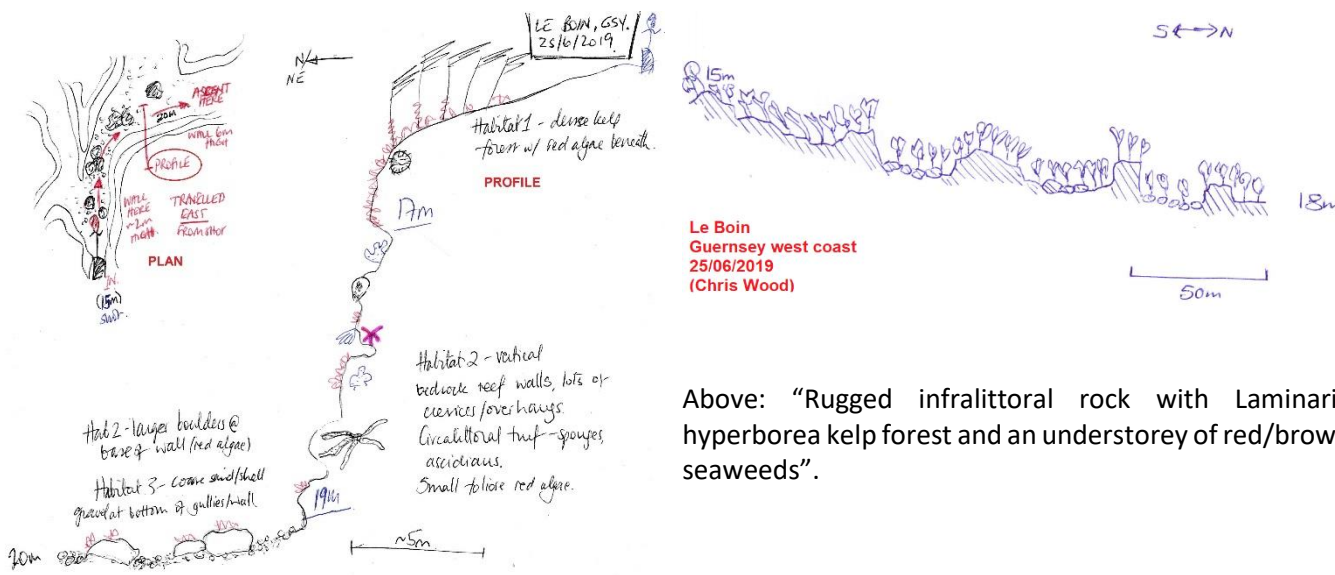 LE BOIN, GSY.
25/6/2019
N
NE
ASCENT
HERE
20m
WALL 6m
HIGH
PROFILE
WALL
HERE
~2m
HIGH
TRAVELLED
EAST
FROM SHOT
PLAN
IN.
(15m)
shot.
Habitat 1 - dense kelp
forest w/ red algae beneath.
PROFILE
17m
Habitat 2 - vertical
bedrock reef walls, lots of
crevices/overhangs.
Circalittoral turf - sponges,
ascidians.
Small foliose red algae.
Hab 2 - larger boulders @
base of wall (red algae)
Habitat 3 - coarse sand/shell
gravel at bottom of gullies/wall.
19m
20m
~5m
S N
15m
18m
Le Boin
Guernsey west coast
25/06/2019
(Chris Wood)
50m
Above: “Rugged infralittoral rock with Laminari
hyperborea kelp forest and an understorey of red/brow
seaweeds”.